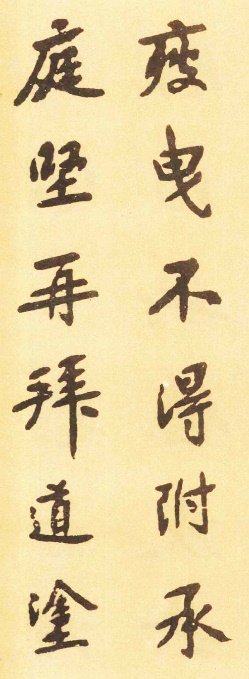 庭堅再拜道塗
疲曳不得附承